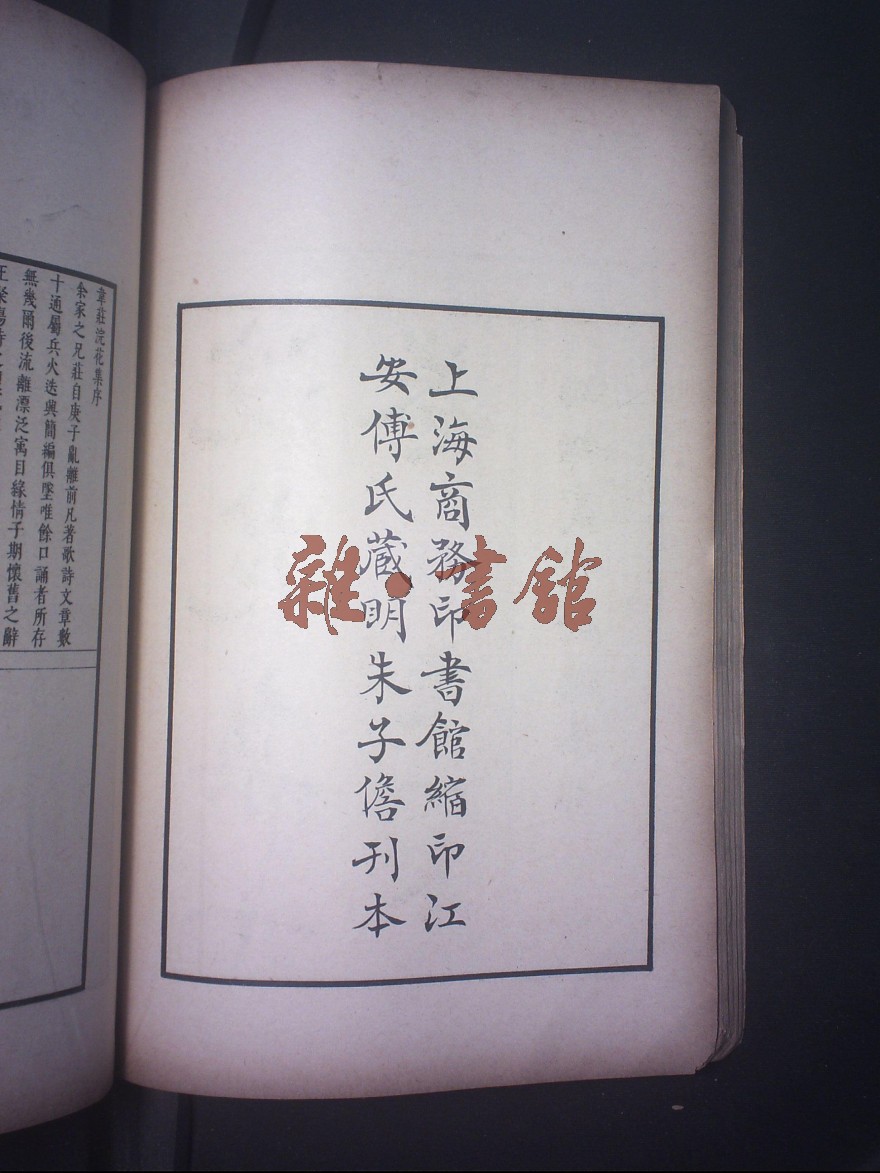 上海商務印書館縮印江
安傅氏藏明朱子儋刊本
雜·書館
韋莊浣花集序
余家之兄莊自庚子亂離前凡著歌詩文章數
十通屬兵火迭興簡編俱墜唯餘口誦者所存
無幾爾後流離漂泛寓目緣情子期懷舊之辭